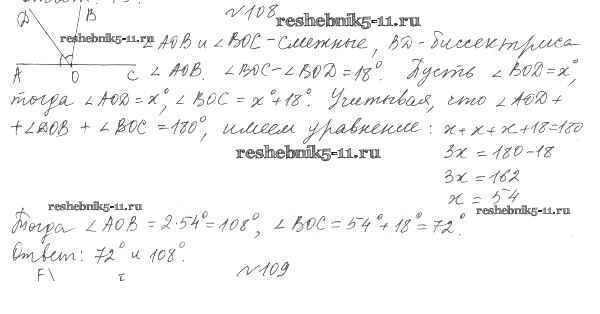 №108
reshebnik5-11.ru
D B
reshebnik5-11.ru
∠AOB и ∠BOC - смежные, BD - биссектриса
A O C
∠AOB. ∠BOC - ∠BOD = 18°. Пусть ∠BOD = x°,
тогда ∠AOD = x°, ∠BOC = x° + 18°. Учитывая, что ∠AOD +
+ ∠DOB + ∠BOC = 180°, имеем уравнение: x + x + x + 18 = 180
reshebnik5-11.ru
3x = 180 - 18
3x = 162
x = 54
reshebnik5-11.ru
reshebnik5-11.ru
Тогда ∠AOB = 2·54° = 108°, ∠BOC = 54° + 18° = 72°.
Ответ: 72° и 108°.
№109